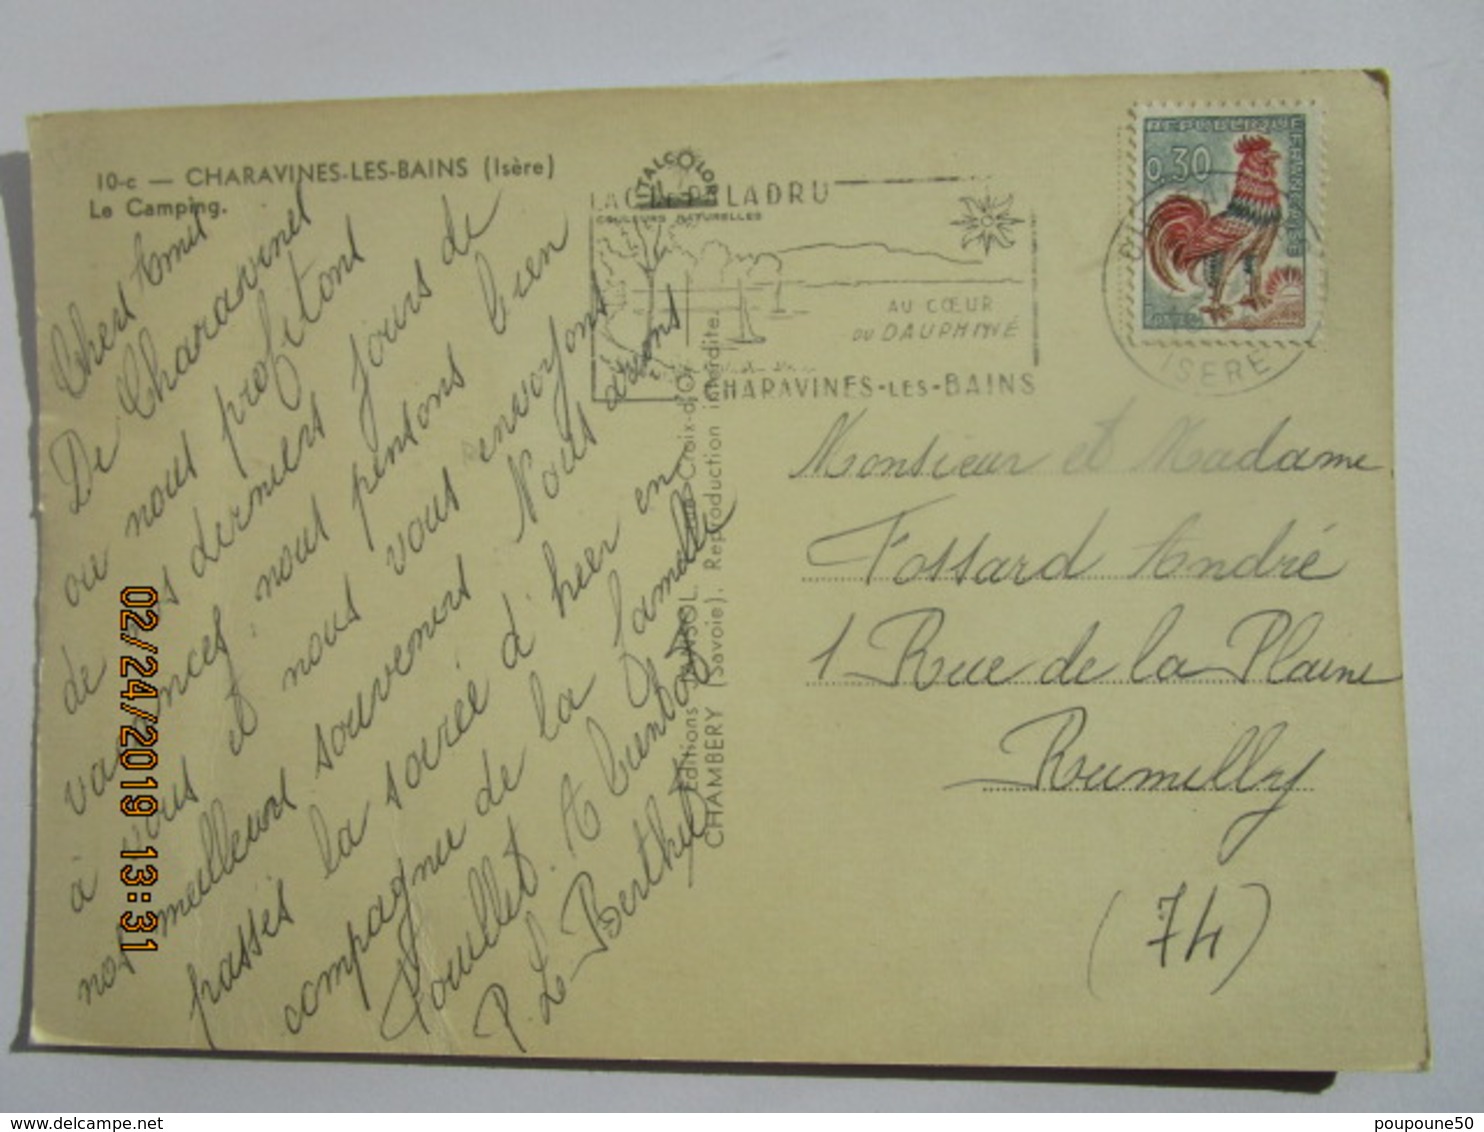 10-c — CHARAVINES-LES-BAINS (Isère)
Le Camping.
ITALCOLOR
COULEURS NATURELLES
LAC DE PALADRU
AU CŒUR
DU DAUPHINÉ
CHARAVINES-LES-BAINS
REPUBLIQUE FRANÇAISE
0,30
POSTES
ISERE
Chers Amis
De Charavines
ou nous profitons
de nos derniers jours de
vacances, nous pensons bien
à vous et nous vous envoyons
nos meilleurs souvenirs. Nous avons
passés la soirée d'hier en
compagnie de la famille
Pouillet. A bientôt
P. Le Berthe
Editions Croix-d'Or
CHAMBERY (Savoie). Reproduction interdite.
Monsieur et Madame
Fossard André
1 Rue de la Plaine
Rumilly
(74)
02/24/2019 13:31
delcampe.net
poupoune50